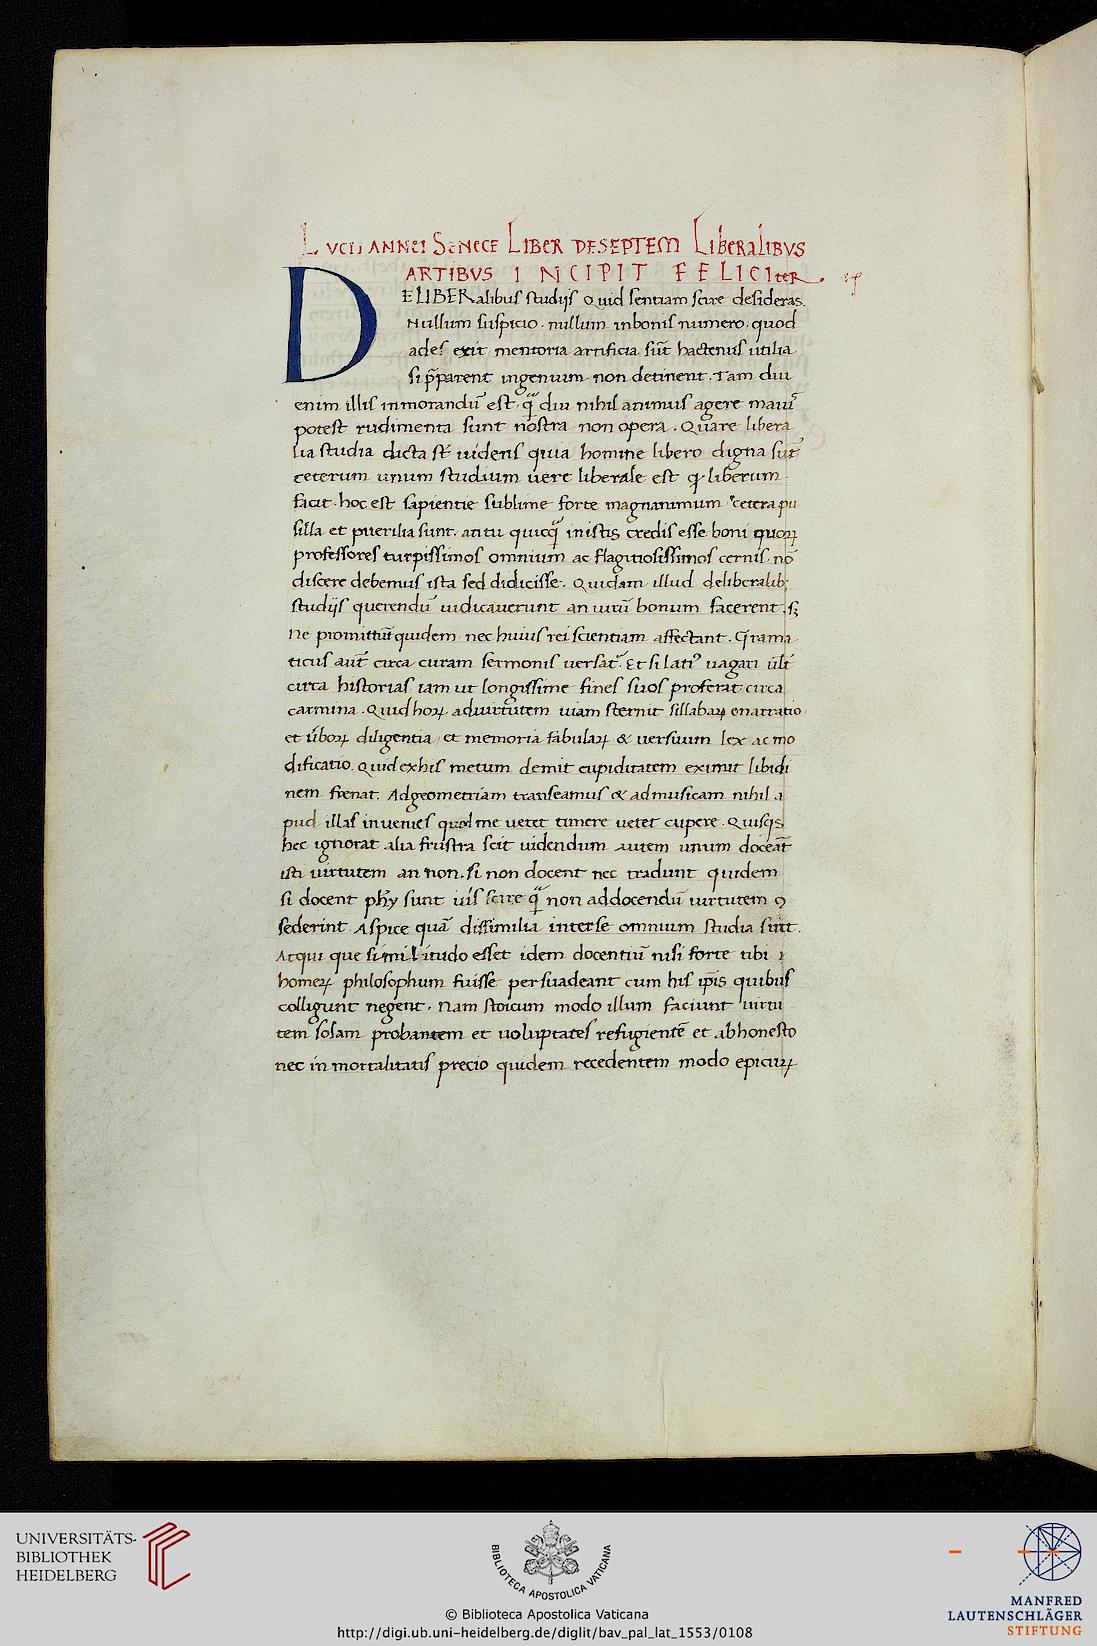 LVCII ANNEI SENECE LIBER DE SEPTEM LIBERALIBVS
ARTIBVS INCIPIT FELICITER.
DE LIBERalibus studijs Quid sentiam scire desideras.
Nullum suspicio. nullum inbonis numero. quod
ades exit. memoria artificia sūt hactenus utilia
si p̄parent ingenium non detinent. Tam diu
enim illis inmorandū est. q̄ diu nihil animus agere maiꝰ
potest rudimenta sunt nostra non opera. Quare libera
lia studia dicta st̄ uidens quia homine libero digna sūt
ceterum unum studium uere liberale est q̄ liberum
facit. hoc est sapientie sublime forte magnanimum cetera pu
silla et puerilia sunt. an tu quicq̄ inistis credis esse boni quoꝝ
professores turpissimos omnium ac flagitiosissimos cernis. nō
discere debemus ista sed didicisse. Quidam illud deliberalib;
studijs querendū iudicauerunt an uirū bonum facerent. sꝫ
Ne promittūt quidem nec huius rei scientiam affectant. Grama
ticus aūt circa curam sermonis uersat᷑. Et si latiꝰ uagari uult
circa historias iam ut longissime fines suos proferat circa
carmina. Quid hoꝝ aduirtutem uiam sternit sillabaꝝ enarratio
et ūboꝝ diligentia et memoria fabulaꝝ & uersuum lex ac mo
dificatio. Quid exhis metum demit cupiditatem eximit libidi
nem frenat. Adgeometriam transeamus & admusicam nihil a
pud illas inuenies quod me uetet timere uetet cupere. Quisqs
hec ignorat alia frustra scit uidendum autem unum doceāt
isti uirtutem an non. si non docent nec tradunt quidem
si docent phy sunt uis scire q̄ non addocendū uirtutem ꝯ
sederint Aspice quā dissimilia interse omnium studia sint.
Atqui que similitudo esset idem docentiū nisi forte tibi
homeꝝ philosophum fuisse persuadeant cum his ip̄is quibus
colligunt negent. Nam stoicum modo illum faciunt uirtu
tem solam probantem et uoluptates refugientē et abhonesto
nec in mortalitatis precio quidem recedentem modo epicuꝝ
UNIVERSITÄTS-
BIBLIOTHEK
HEIDELBERG
BIBLIOTECA APOSTOLICA VATICANA
© Biblioteca Apostolica Vaticana
http://digi.ub.uni-heidelberg.de/diglit/bav_pal_lat_1553/0108
MANFRED
LAUTENSCHLÄGER
STIFTUNG